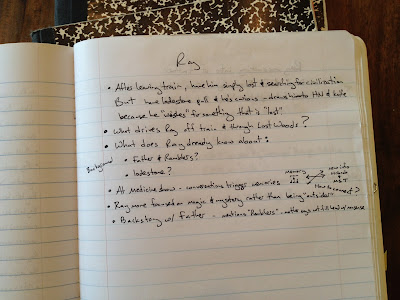 Ray
• After leaving train, have him simply lost & searching for civilization
But have lodestone pull & he's curious - draws him to Hill &
because he "wishes" for something that is "lost"
• What drives Ray off train & through Lost Woods?
• What does Ray already know about:
Background • Father & Ramblers?
• lodestone?
• At Medicine show - conversations trigger memories
memory
new info
M&T
How to connect?
• Ray more focused on magic & mystery rather than being "outsider"
• Backstory w/ Father - mentions "Ramblers" - mother says not fill head w/ nonsense